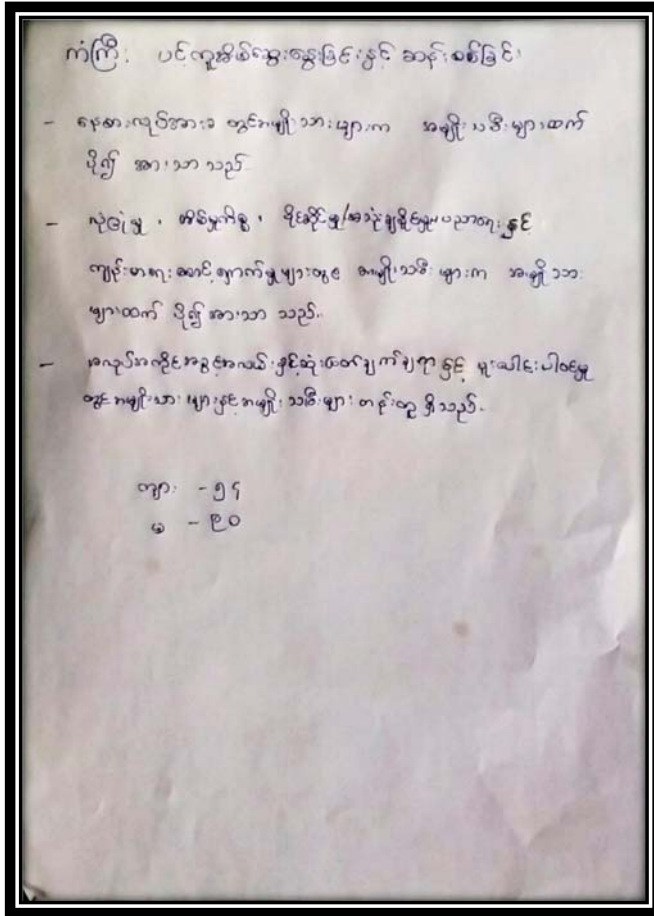 ကံကြီး ပင့်ကူအိမ်ဆွေးနွေးခြင်းနှင့် ဆန်းစစ်ခြင်း
- နေ့စားလုပ်အားခ တွင်အမျိုးသားများက အမျိုးသမီးများထက်
ပို၍ အားသာသည်
- လုံခြုံမှု၊ အိမ်မှုကိစ္စ၊ ပိုင်ဆိုင်မှု/အသုံးချနိုင်မှု၊ ပညာရေးနှင့်
ကျန်းမာရေးစောင့်ရှောက်မှုများတွင် အမျိုးသမီးများက အမျိုးသား
များထက် ပို၍အားသာသည်.
- အလုပ်အကိုင်အခွင့်အလမ်းနှင့်ဆုံးဖြတ်ချက်ချရာနှင့် ပူးပေါင်းပါဝင်မှု
တွင်အမျိုးသားများနှင့်အမျိုးသမီးများ တန်းတူရှိသည်.
ကျား - ၅၄
မ - ၉၀